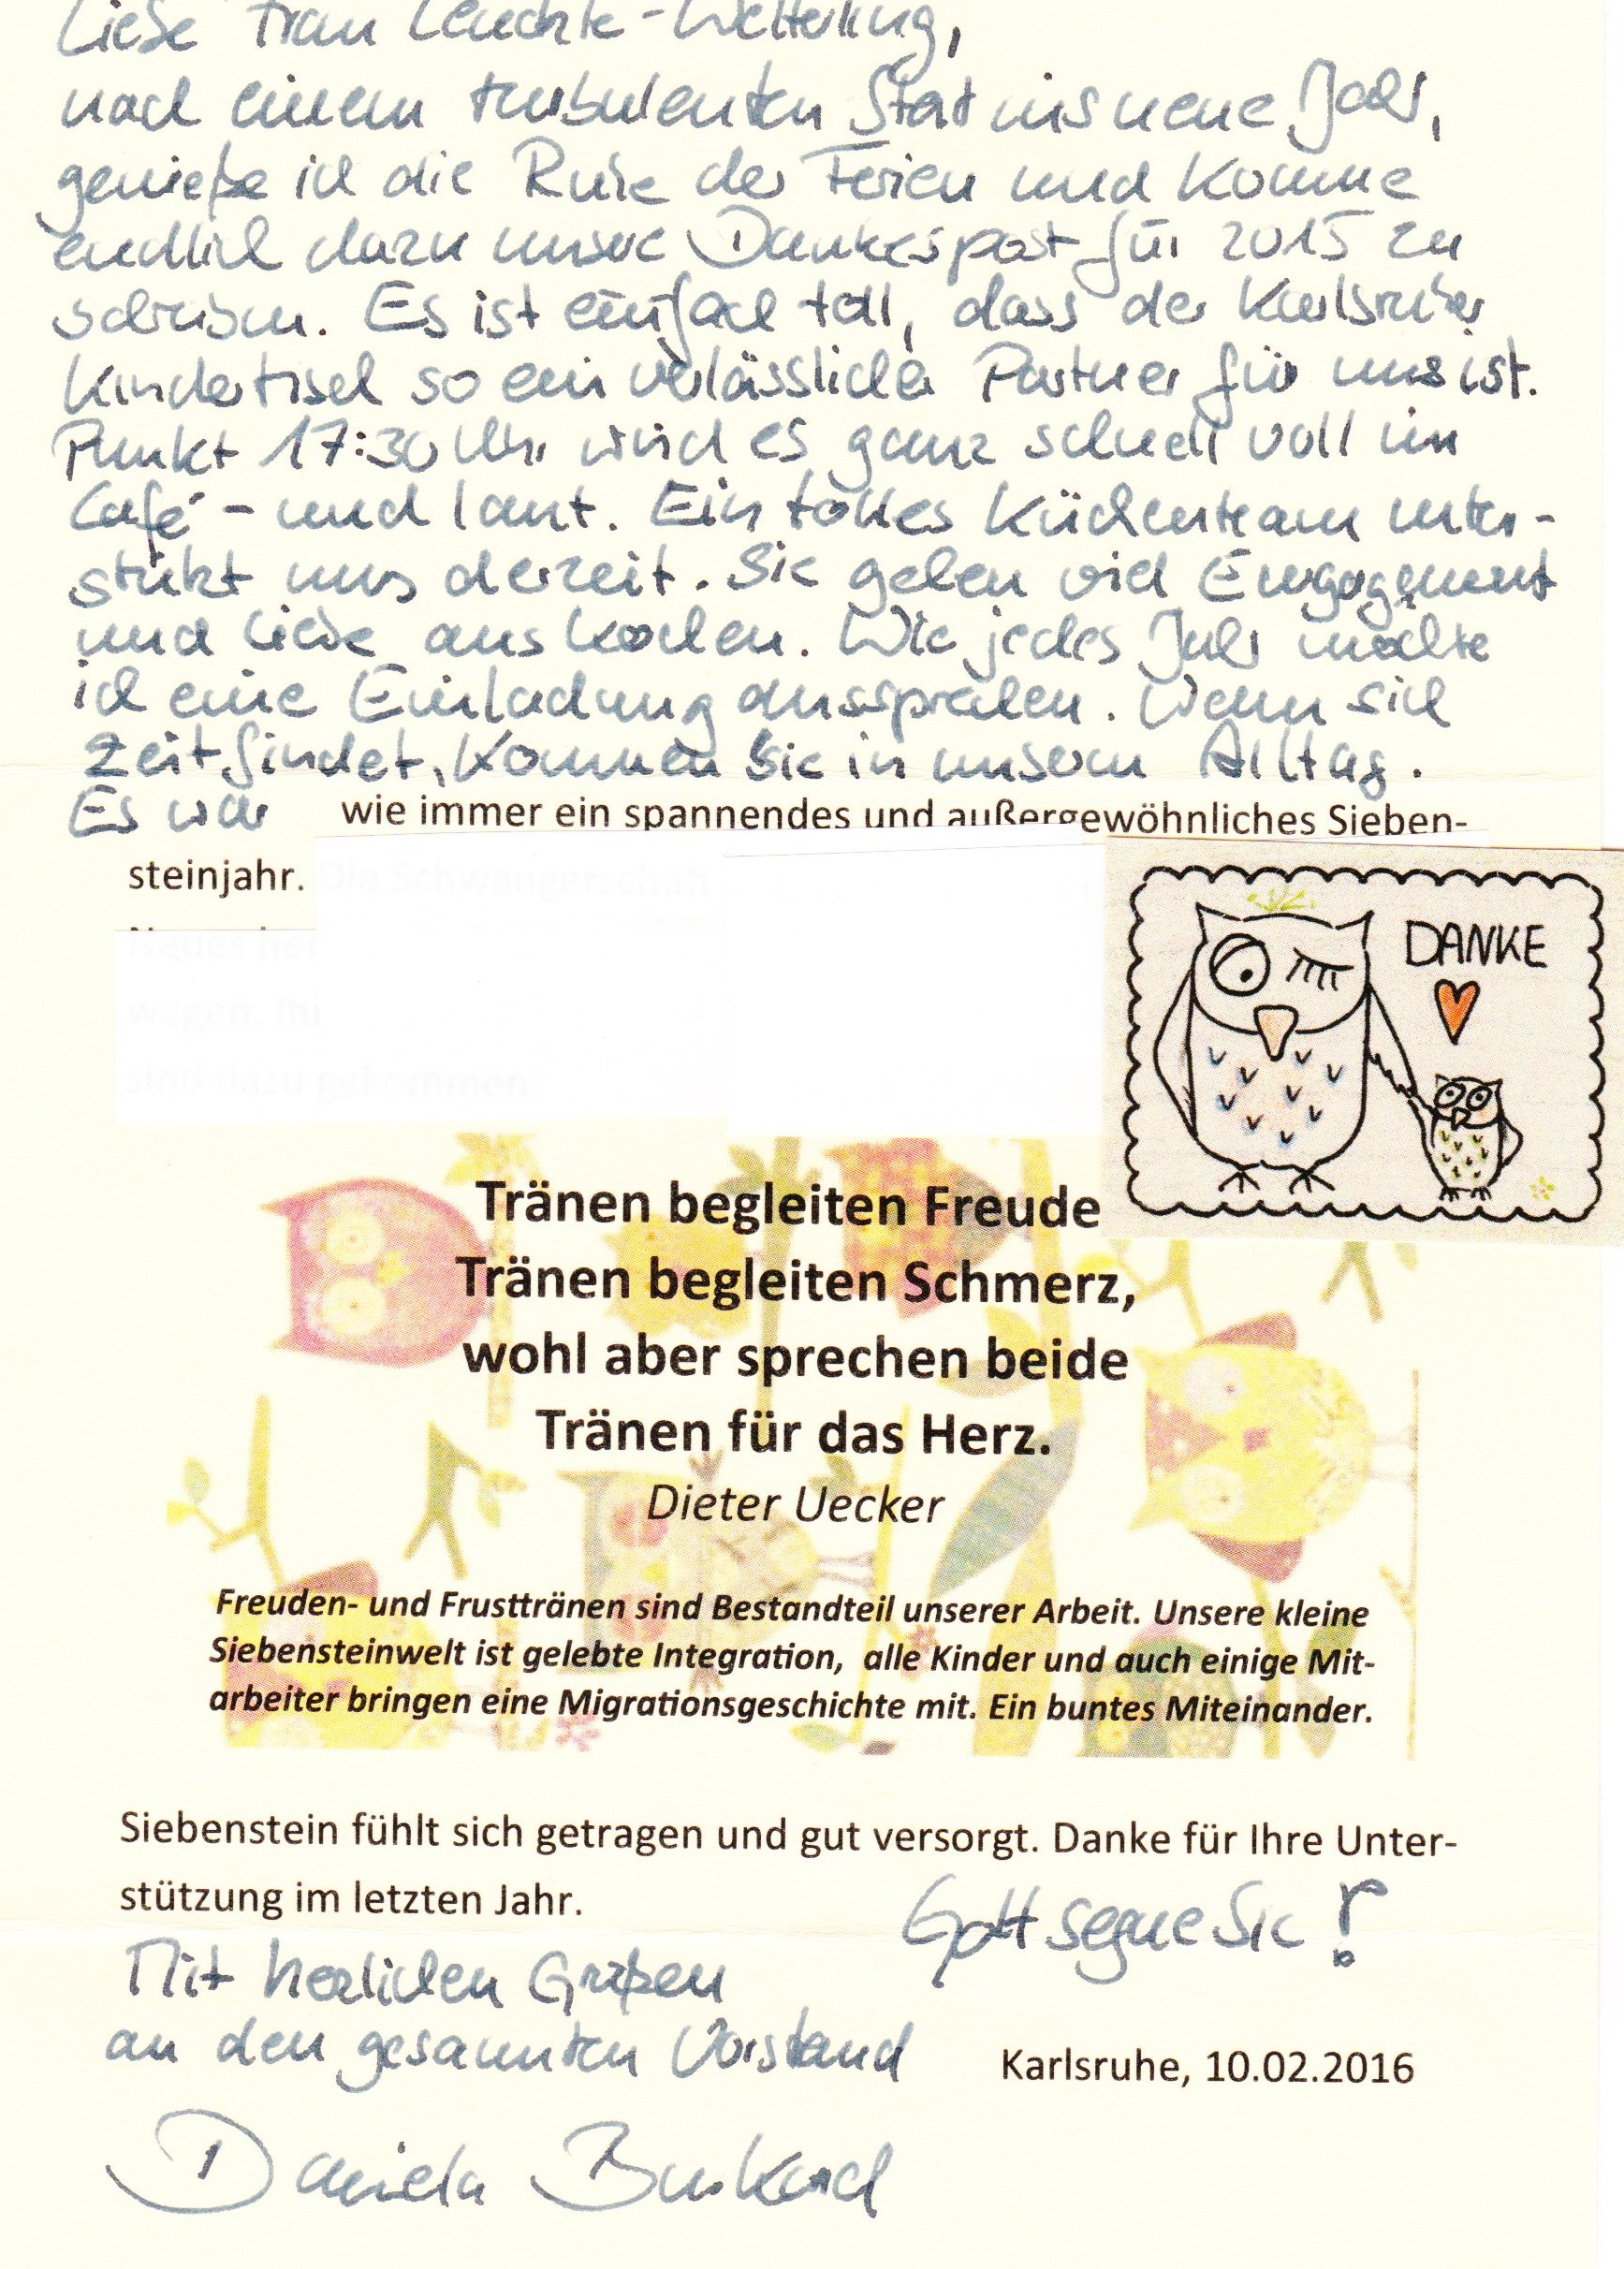 Liebe Frau Leuchte-Wetterling,
nach einem turbulenten Start ins neue Jahr,
genieße ich die Ruhe der Ferien und komme
endlich dazu unsere Dankespost für 2015 zu
schreiben. Es ist einfach toll, dass der Karlsruher
Kindertisch so ein verlässlicher Partner für uns ist.
Punkt 17:30 Uhr wird es ganz schnell voll im
Café - und laut. Ein tolles Küchenteam unter-
stützt uns derzeit. Sie geben viel Engagement
und Liebe ans Kochen. Wie jedes Jahr möchte
ich eine Einladung aussprechen. Wenn sich
Zeit findet, kommen Sie in unserem Alltag.
Es war wie immer ein spannendes und außergewöhnliches Sieben-
steinjahr. Die Schwangerschaft
Neues
wagen. Ih
sind dazu gekommen.
DANKE
Tränen begleiten Freude
Tränen begleiten Schmerz,
wohl aber sprechen beide
Tränen für das Herz.
Dieter Uecker
Freuden- und Frusttränen sind Bestandteil unserer Arbeit. Unsere kleine
Siebensteinwelt ist gelebte Integration, alle Kinder und auch einige Mit-
arbeiter bringen eine Migrationsgeschichte mit. Ein buntes Miteinander.
Siebenstein fühlt sich getragen und gut versorgt. Danke für Ihre Unter-
stützung im letzten Jahr.
Gott segne Sie!
Mit herzlichen Grüßen
an den gesamten Vorstand
Karlsruhe, 10.02.2016
Daniela Burkard